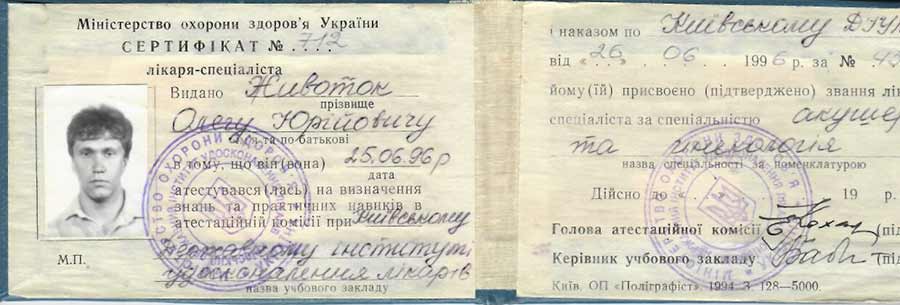 Міністерство охорони здоров'я України
СЕРТИФІКАТ № 712
лікаря-спеціаліста
Видано Животок
прізвище
Олегу Юрійовичу
ім'я, та по батькові
в тому, що він(вона) 25.06.96р
дата
атестувався(лась) на визначення
знань та практичних навиків в
атестаційній комісії при Київському
державному інституті
удосконалення лікарів
М.П.
назва учбового закладу
і наказом по Київському ДІУЛ
від «26» 06 1996 р. за № 43
йому(їй) присвоєно (підтверджено) звання ліка
спеціаліста за спеціальністю акушер
та гінекологія
назва спеціальності за номенклатурою
Дійсно до 19 р.
Голова атестаційної комісії (підп
Керівник учбового закладу (підп
Київ. ОП «Поліграфіст» 1994 З. 128—5000.